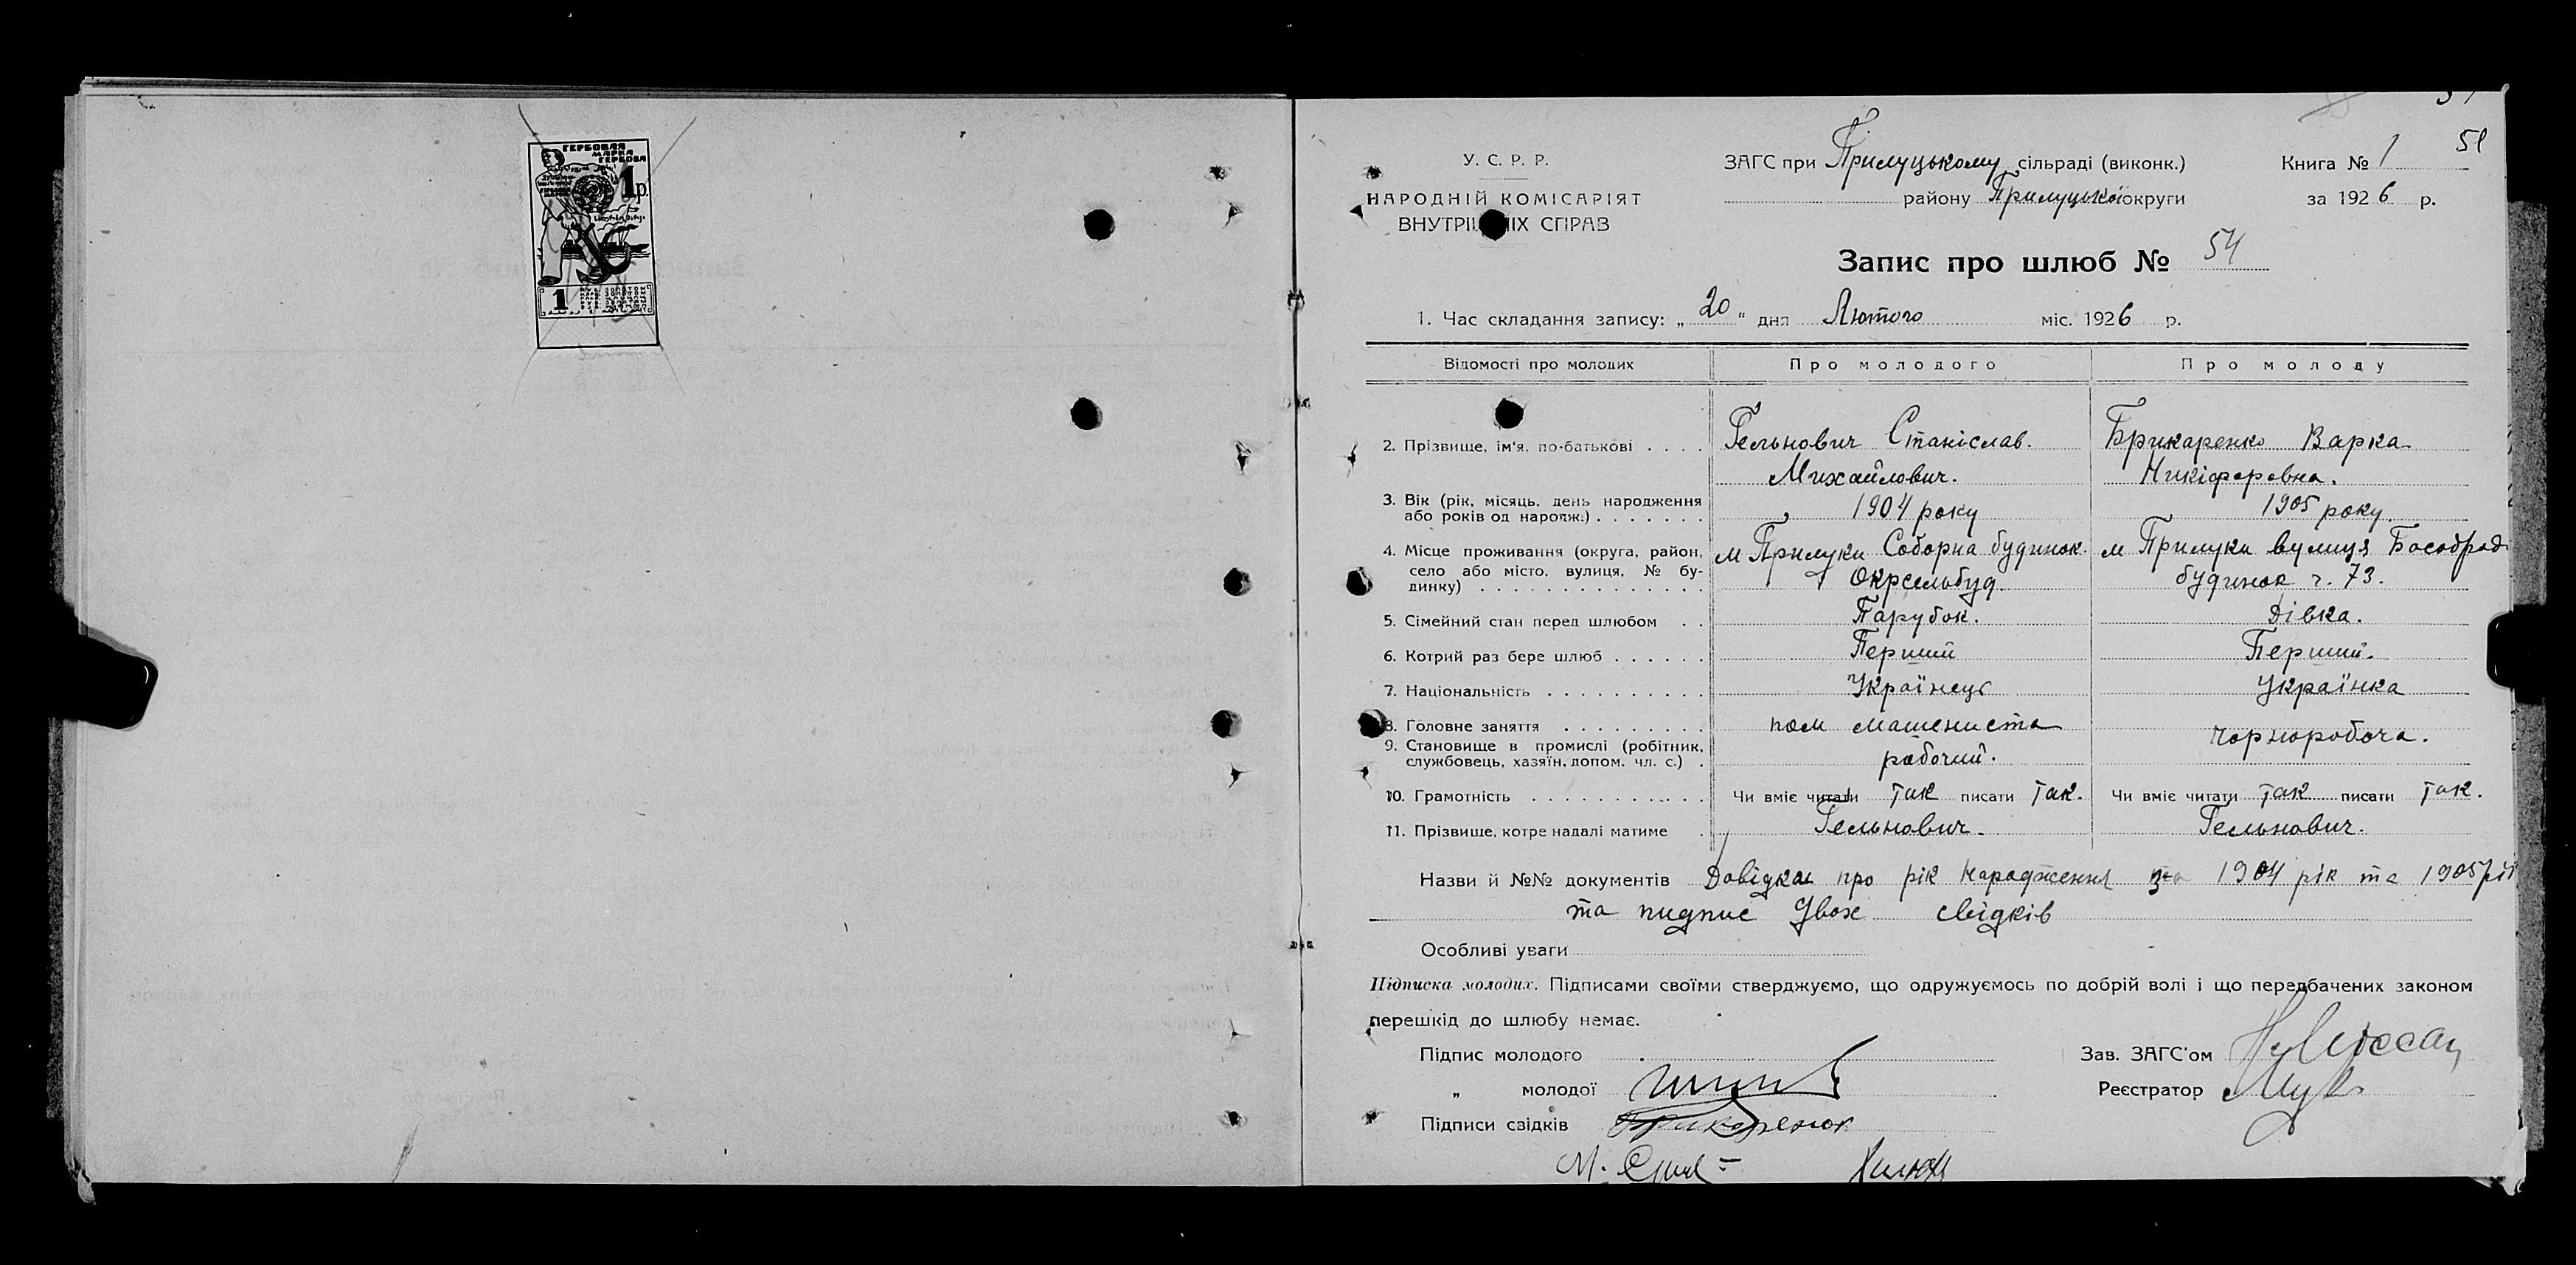 ГЕРБОВАЯ
МАРКА
ГЕРБОВА
1р.
1
51
У. С. Р. Р.
НАРОДНІЙ КОМІСАРІЯТ
ВНУТРІШНІХ СПРАВ
ЗАГС при Прилуцькому сільраді (виконк.)
району Прилуцької округи
Книга № 1
за 1926 р.
Запис про шлюб № 54
1. Час складання запису: „20“ дня Лютого міс. 1926 р.
Відомості про молодих Про молодого Про молоду
2. Прізвище, ім'я, по-батькові . . . . Гельнович Станіслав. Брикаренко Варка
Михайлович. Никіфоровна.
3. Вік (рік, місяць, день народження
або років од народж.) . . . . . . . 1904 року 1905 року.
4. Місце проживання (округа, район, м Прилуки Соборна будинок м Прилуки вулиця
село або місто, вулиця, № бу- Окрсельбуд будинок ч. 73.
динку) . . . . . . . . . . . . . .
5. Сімейний стан перед шлюбом . . Парубок. Дівка.
6. Котрий раз бере шлюб . . . . . . Перший Перший.
7. Національність . . . . . . . . . . Українець Українка
8. Головне заняття . . . . . . . . . пом машениста чорноробоча.
9. Становище в промислі (робітник,
службовець, хазяїн, допом. чл. с.) . рабочий.
10. Грамотність . . . . . . . . . . . Чи вміє читати так писати так. Чи вміє читати так писати так.
11. Прізвище, котре надалі матиме . Гельнович. Гельнович.
Назви й №№ документів Довідка про рік народження за 1904 рік та 1905 рік
та пидпис двох свідків
Особливі уваги
Підписка молодих. Підписами своїми стверджуємо, що одружуємось по добрій волі і що передбачених законом
перешкід до шлюбу немає.
Підпис молодого
Зав. ЗАГС'ом
„ молодої
Реєстратор
Підписи свідків